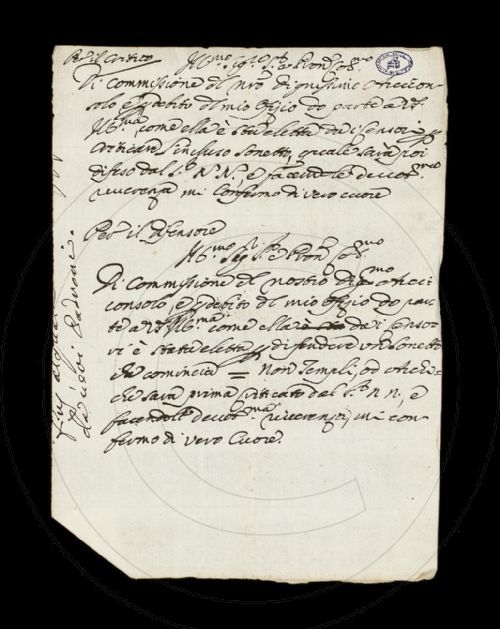 Per il Critico
Ill.mo Sig.r S.r e Pron Col.mo
Di commissione del nro Dignissimo Arcicon-
solo e p debito del mio Offizio do parte a V.S.
Ill.ma, come ella è stata eletta da i Censori p
criticare l'incluso Sonetto, quale sarà poi
difeso dal S.r N.N., e facendole devot.ma
reverenza mi confermo di vero cuore
Per il Difensore
Ill.mo Sig.r S.r e Pron Col.mo
Di commissione del nostro Dig.mo Arci-
consolo, e p debito del mio Offizio do par-
te a V.S. Ill.ma come ella è da i Censo-
ri è stata eletta p difendere un Sonetto
che comincia = Non Templi, od Archi =
che sarà prima criticato dal S.r N.N., e
facendole devot.ma reverenza, mi con-
fermo di vero Cuore.